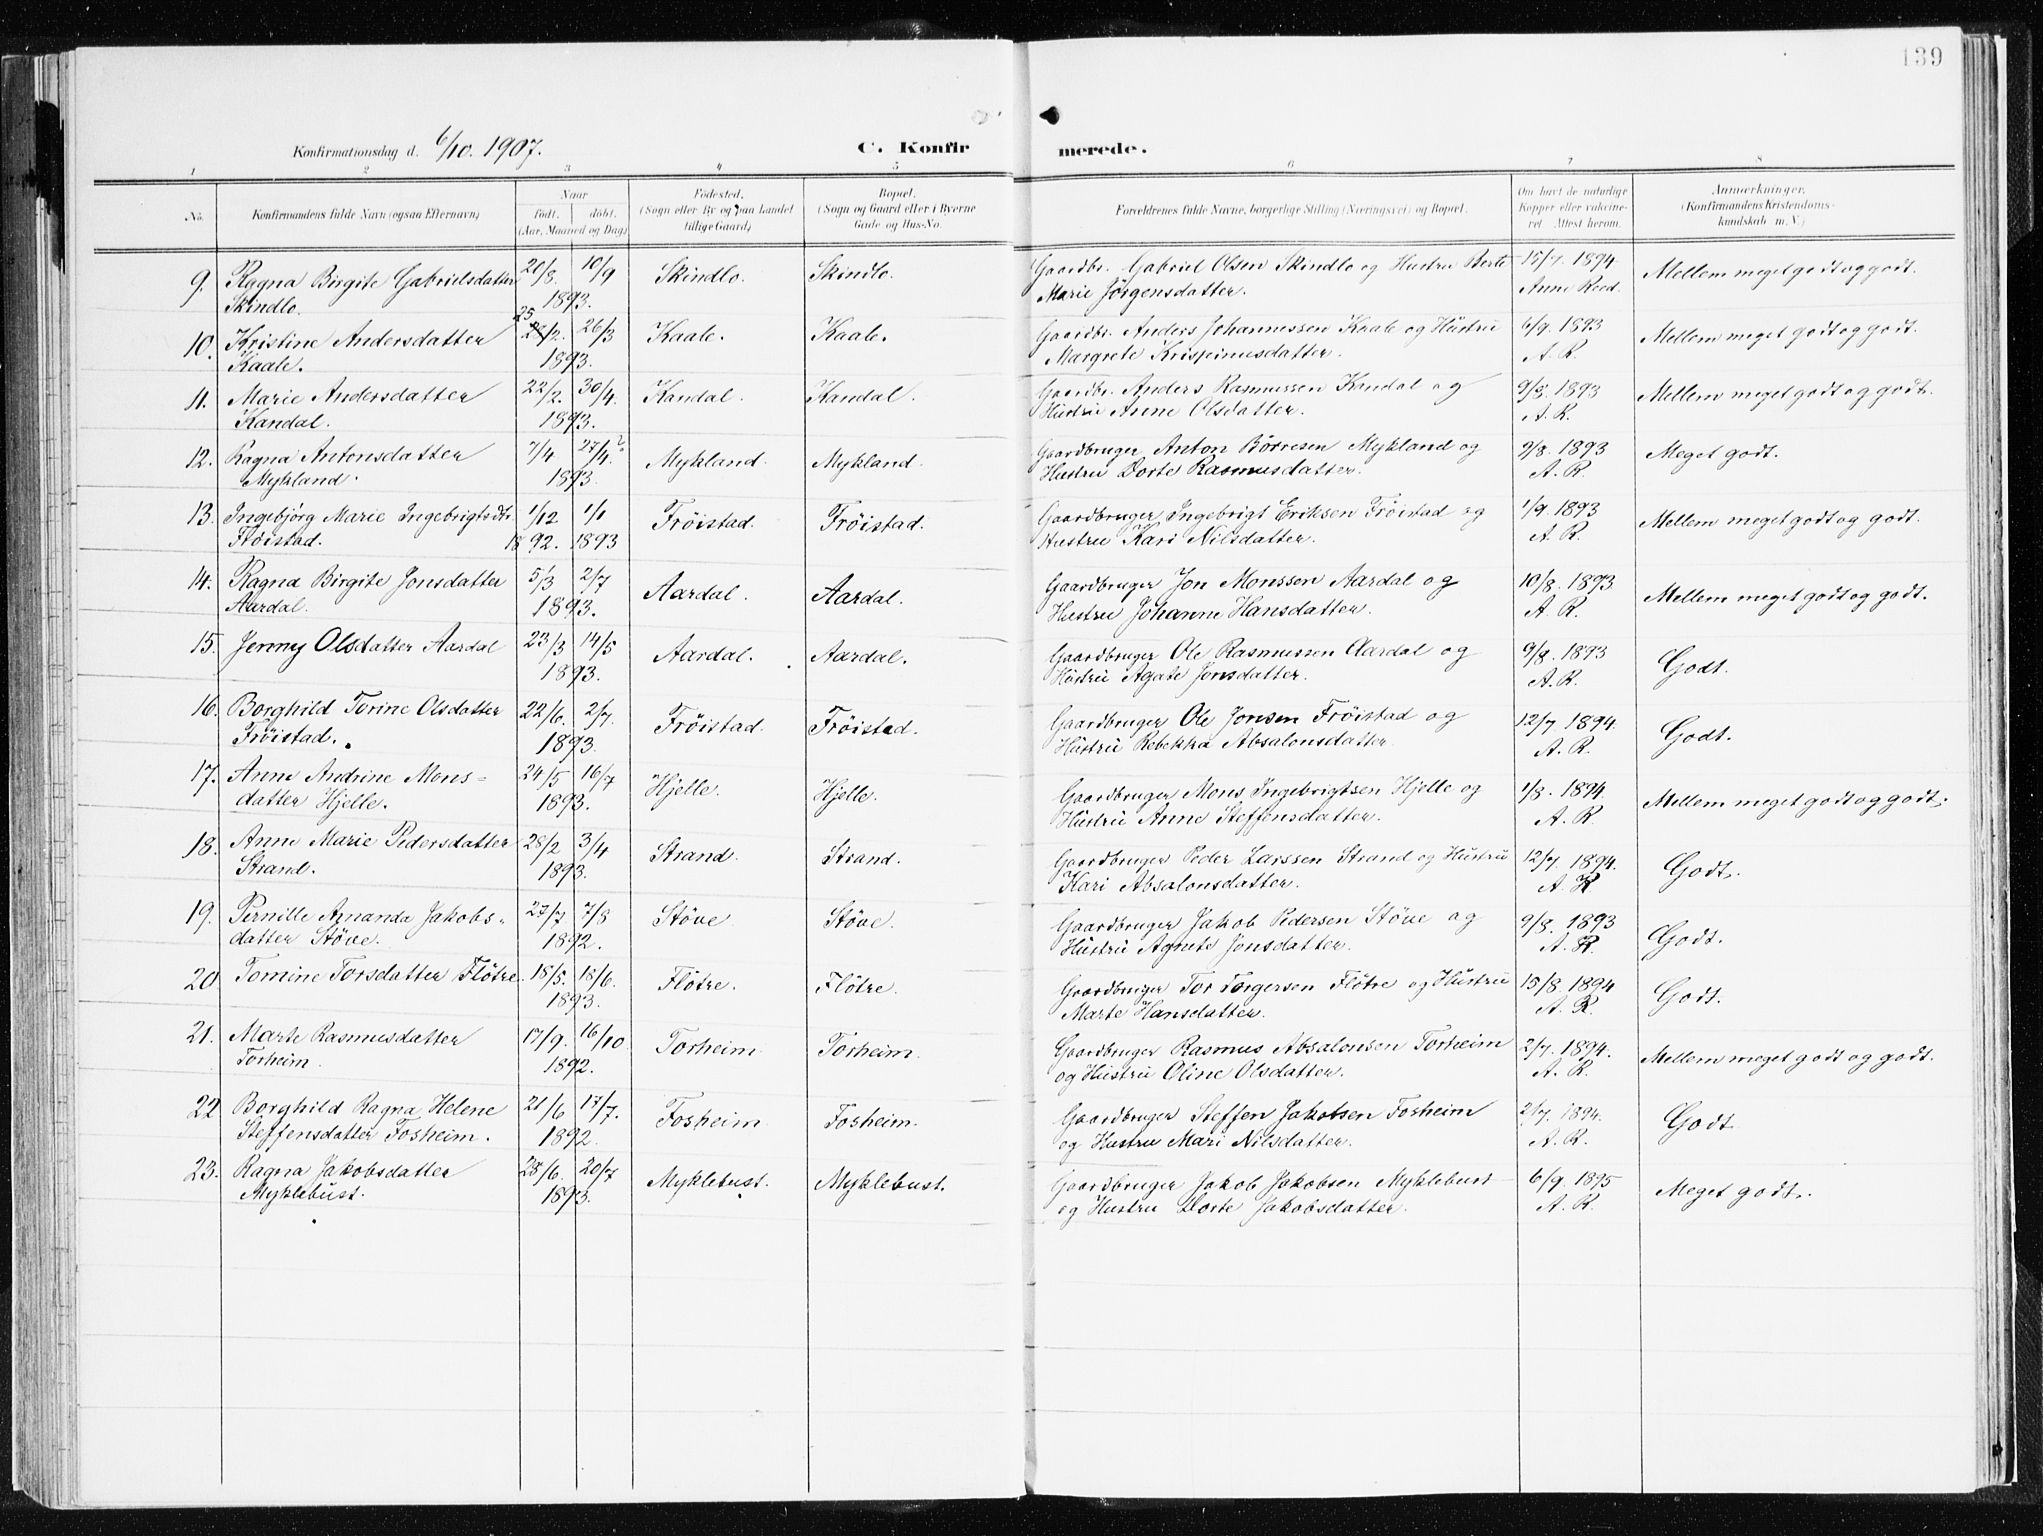 139
Konfirmationsdag d. 6/10. 1907.
C. Konfirmerede.
1 2 3 4 5 6 7 8
No.
Konfirmandens fulde Navn (ogsaa Efternavn)
Naar
født. døbt.
(Aar, Maaned og Dag)
Fødested.
(Sogn eller By og paa Landet
tillige Gaard)
Bopæl.
(Sogn og Gaard eller i Byerne
Gade og Hus-No.
Forældrenes fulde Navne, borgerlige Stilling (Næringsvei) og Bopæl.
Om havt de naturlige
Kopper eller vakcine-
ret. Attest herom.
Anmærkninger.
(Konfirmandens Kristendoms-
kundskab m. V.)
9. Ragna Birgite Gabrielsdatter 20/8. 10/9 Skindlo. Skindlo. Gaardbr. Gabriel Olsen Skindlo og Hustru Berte 15/7. 1894. Mellem meget godt og godt.
Skindlo. 1893. Marie Jørgensdatter. Anne Reed.
10. Kristine Andersdatter 25/2. 26/3 Kaale. Kaale. Gaardbr. Anders Johannessen Kaale og Hustru 6/9. 1893 Mellem meget godt og godt.
Kaale. 1893. Margrete Krispinusdatter. A. R.
11. Marie Andersdatter 22/2. 30/4. Kandal. Kandal. Gaardbr. Anders Rasmussen Kandal og 9/8. 1893 Mellem meget godt og godt.
Kandal. 1893. Hustru Anne Olsdatter. A. R.
12. Ragna Antonsdatter 7/4 27/4.? Mykland. Mykland. Gaardbruger Anton Børresen Mykland og 9/8. 1893 Meget godt.
Mykland. 1893. Hustru Dorte Rasmusdatter. A. R.
13. Ingebjørg Marie Ingebrigtsdtr. 1/12 1/1 Frøistad. Frøistad. Gaardbruger Ingebrigt Eriksen Frøistad og 1/9. 1893 Mellem meget godt og godt.
Frøistad. 1892. 1893 Hustru Kari Nilsdatter. A. R.
14. Ragna Birgite Jonsdatter 5/3 2/7 Aardal. Aardal. Gaardbruger Jon Monssen Aardal og 10/8. 1893 Mellem meget godt og godt.
Aardal. 1893. Hustru Johanne Hansdatter. A. R.
15. Jenny Olsdatter Aardal 23/3 14/5 Aardal. Aardal. Gaardbruger Ole Rasmussen Aardal og 9/8. 1893 Godt.
1893. Hustru Agate Jonsdatter. A. R.
16. Borghild Torine Olsdatter 22/6. 2/7. Frøistad. Frøistad. Gaardbruger Ole Jonsen Frøistad og 12/7. 1894. Godt.
Frøistad. 1893. Hustru Rebekka Absalonsdatter A. R.
17. Anne Andrine Mons= 24/5 16/7 Hjelle. Hjelle. Gaardbruger Mons Ingebrigtsen Hjelle og 1/8. 1894. Mellem meget godt og godt.
datter Hjelle. 1893. Hustru Anne Steffensdatter. A. R.
18. Anne Marie Pedersdatter 28/2 3/4 Strand. Strand. Gaardbruger Peder Larssen Strand og Hustru 12/7. 1894. Godt.
Strand. 1893. Kari Absalonsdatter. A. R
19. Pernille Amanda Jakobs= 23/7 7/8 Støve Støve. Gaardbruger Jakob Pedersen Støve og 9/8. 1893 Godt.
datter Støve. 1892. Hustru Agnete Jonsdatter. A. R.
20. Tomine Torsdatter Fløtre. 18/5. 18/6. Fløtre. Fløtre. Gaardbruger Tor Torgersen Fløtre og Hustru 15/8. 1894 Godt.
1893. Marte Hansdatter. A. R.
21. Marte Rasmusdatter 17/9. 16/10 Torheim. Torheim. Gaardbruger Rasmus Absalonsen Torheim 2/7. 1894. Mellem meget godt og godt.
Torheim. 1892. og Hustru Oline Olsdatter. A. R.
22 Borghild Ragna Helene 21/6 17/7. Fosheim. Fosheim. Gaardbruger Steffen Jakobsen Fosheim 2/7. 1894. Godt
Steffensdatter Fosheim. 1892. og Hustru Mari Nilsdatter. A. R.
23. Ragna Jakobsdatter 28/6. 20/7 Myklebust. Myklebust. Gaardbruger Jakob Jakobsen Myklebust 6/9. 1895 Meget godt.
Myklebust. 1893. og Hustru Dorte Jakobsdatter. A. R.